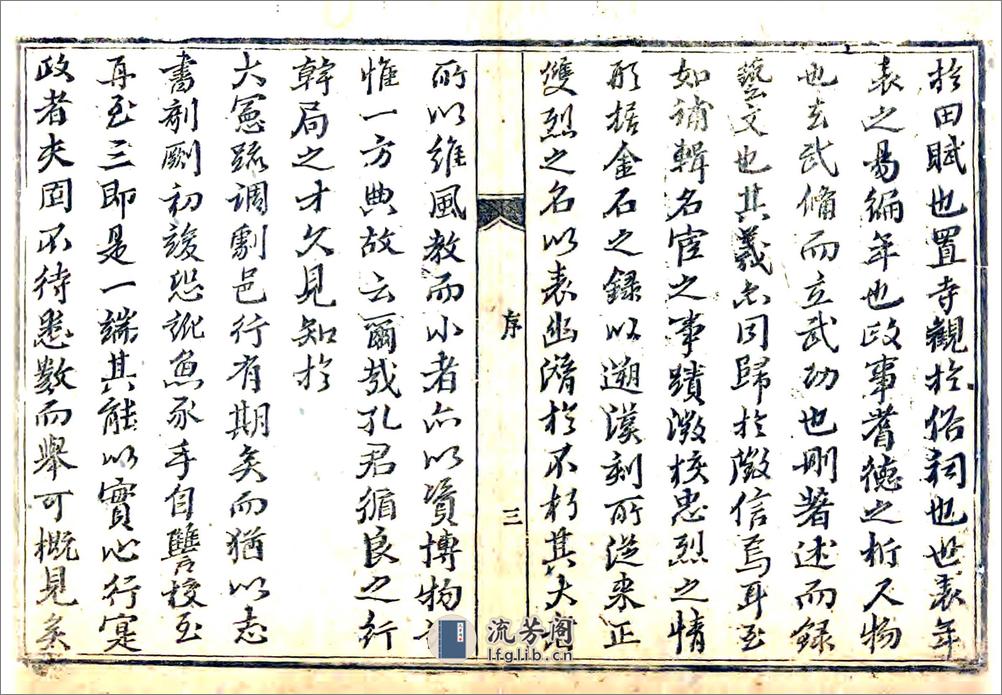 於田賦也置寺觀於俗祠也世表年
表之易編年也政事耆德之析人物
也去武備而立武功也刪著述而錄
藝文也其義亦同歸於徵信焉耳至
如補輯名宦之事蹟激核忠烈之情
形据金石之錄以遡漢刻所從来正
雙烈之名以表幽潛於不朽其大
序
三
所以維風教而小者亦以資博物
惟一方典故云爾哉孔君循良之行
幹局之才久見知於
大憲䟽調劇邑行有期矣而猶以志
書剞劂初竣恐訛魚豕手自讐校至
再至三即是一端其能以實心行寔
政者夫固不待悉數而舉可概見矣
流芳阁
lfglib.cn